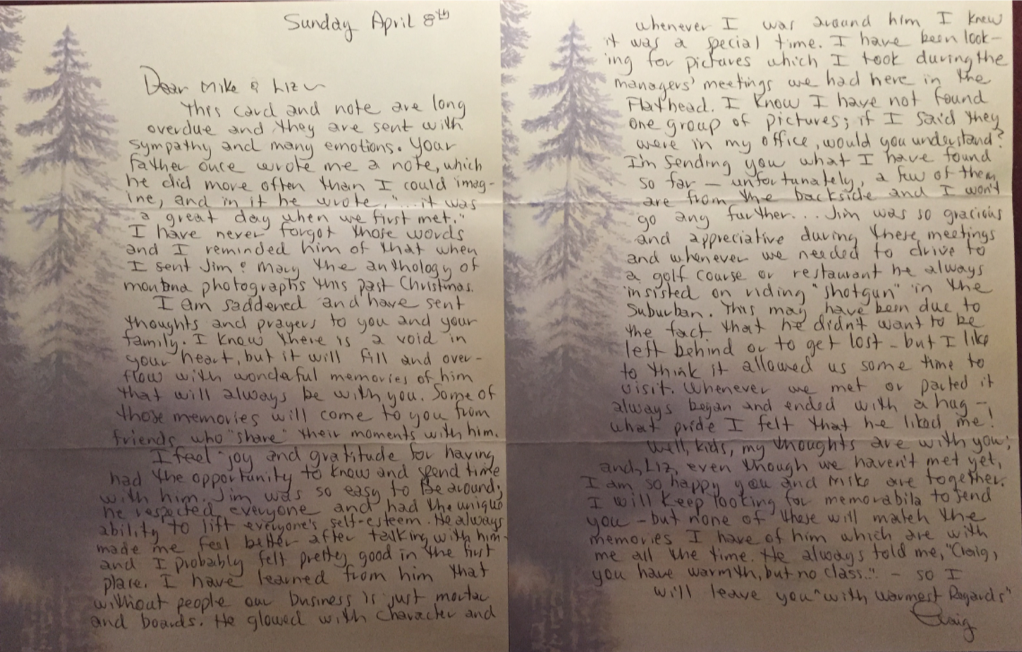 Sunday April 8th
Dear Mike & Liz ~
This card and note are long
overdue and they are sent with
sympathy and many emotions. Your
father once wrote me a note, which
he did more often than I could imag-
ine, and in it he wrote, "... it was
a great day when we first met."
I have never forgot those words
and I reminded him of that when
I sent Jim & Mary the anthology of
montana photographs this past Christmas.
I am saddened and have sent
thoughts and prayers to you and your
family. I know there is a void in
your heart, but it will fill and over-
flow with wonderful memories of him
that will always be with you. Some of
those memories will come to you from
friends who "share" their moments with him.
I feel joy and gratitude for having
had the opportunity to know and spend time
with him. Jim was so easy to be around;
he respected everyone and had the unique
ability to lift everyone's self-esteem. He always
made me feel better after talking with him -
and I probably felt pretty good in the first
place. I have learned from him that
without people our business is just mortar
and boards. He glowed with character and
whenever I was around him I knew
it was a special time. I have been look-
ing for pictures which I took during the
managers' meetings we had here in the
Flathead. I know I have not found
one group of pictures; if I said they
were in my office, would you understand?
I'm sending you what I have found
so far - unfortunately, a few of them
are from the backside and I won't
go any further... Jim was so gracious
and appreciative during these meetings
and whenever we needed to drive to
a golf course or restaurant he always
insisted on riding "shotgun" in the
Suburban. This may have been due to
the fact that he didn't want to be
left behind or to get lost - but I like
to think it allowed us some time to
visit. Whenever we met or parted it
always began and ended with a hug -
what pride I felt that he liked me!
Well, kids, my thoughts are with you;
and, Liz, even though we haven't met yet,
I am so happy you and Mike are together.
I will keep looking for memorabila to send
you - but none of these will match the
memories I have of him which are with
me all the time. He always told me, "Craig,
you have warmth, but no class." - so I
will leave you "with warmest Regards"
Craig